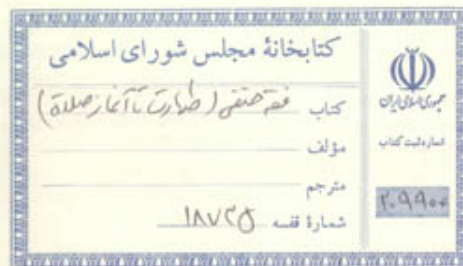 کتابخانهٔ مجلس شورای اسلامی
کتاب فقه حنفی (طهارت تا آغاز صلاة)
مؤلف
مترجم
شمارهٔ قفسه ۱۸۷۲۵
جمهوری اسلامی ایران
شماره ثبت کتاب
۲۰۹۹۰۰